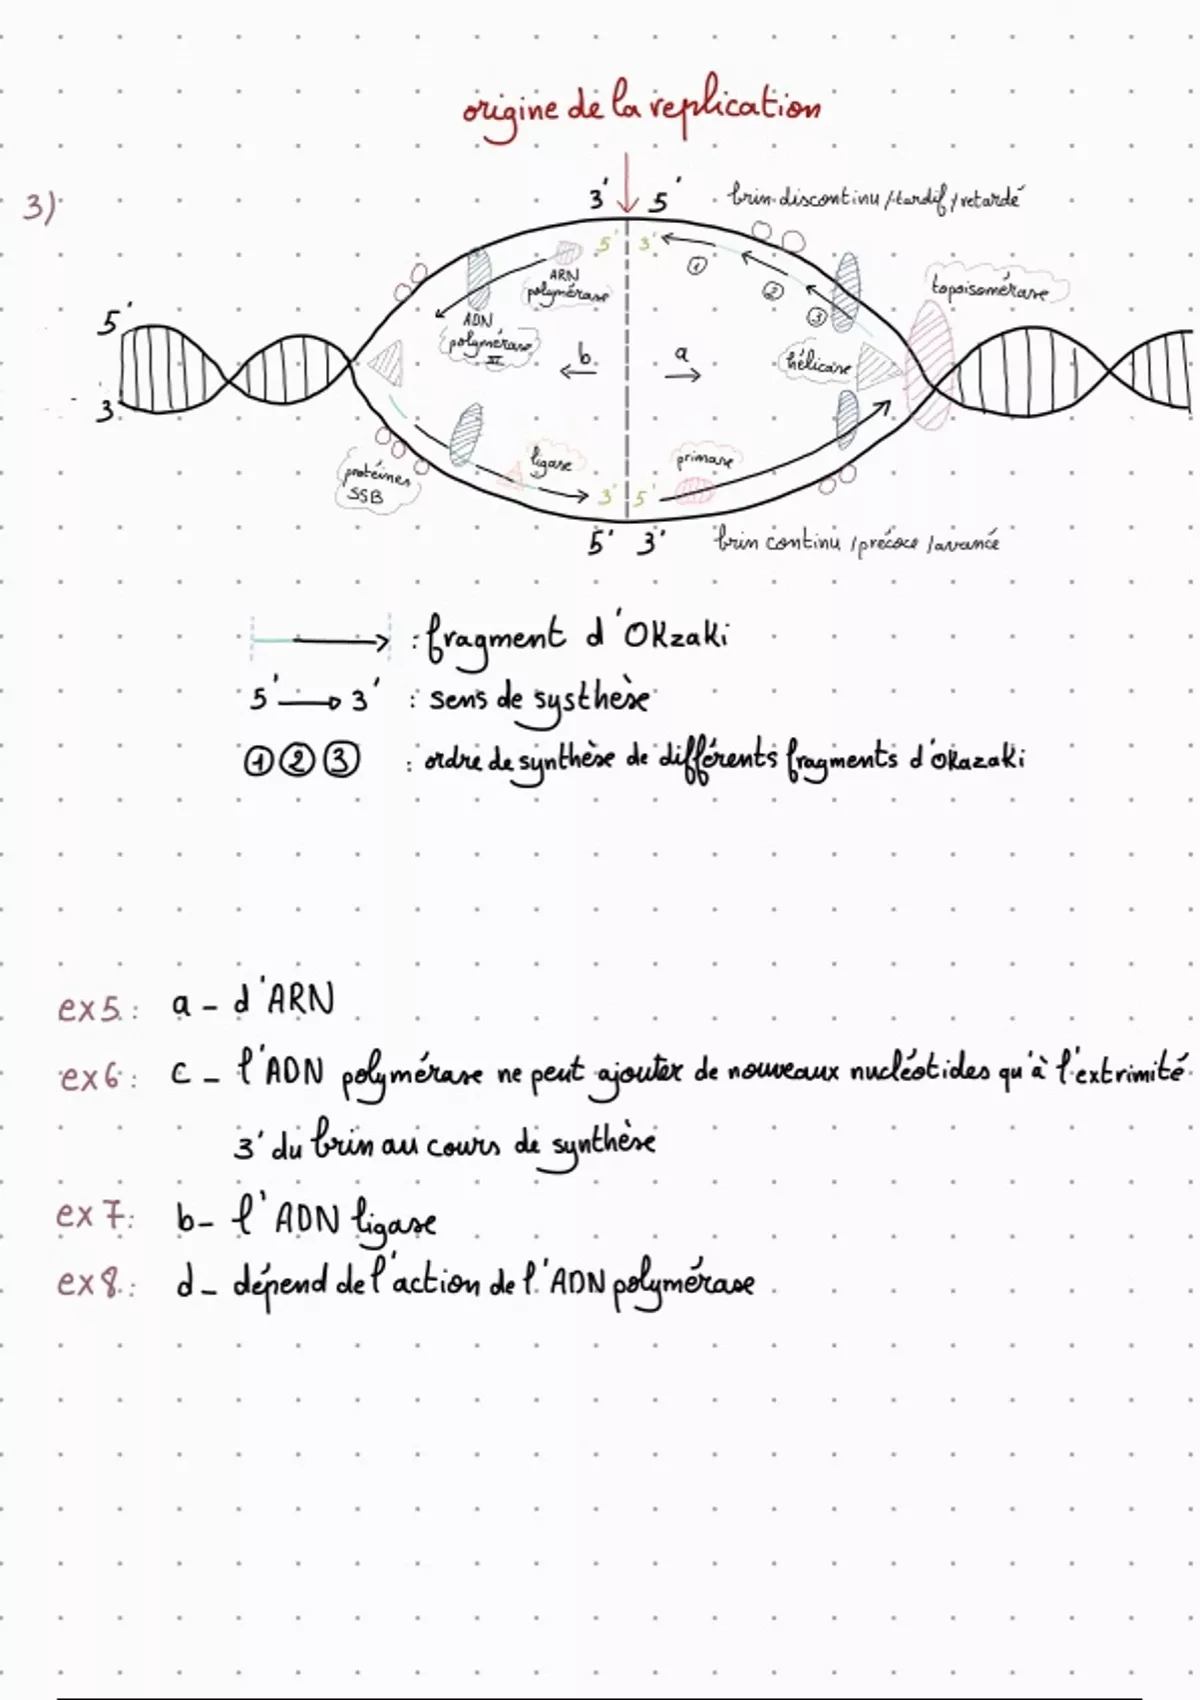 origine de la replication
3)
3' 5'
brin discontinu / tardif / retardé
5' 3'
①
②
③
ARN
polymérase
ADN
polymérase
III
topoisomérase
hélicase
5'
3'
b
a
protéines
SSB
ligase
primase
3' 5'
5' 3'
brin continu / précoce / avancé
: fragment d'OKzaki
5' 3' : sens de systhèse
① ② ③ : ordre de synthèse de différents fragments d'okazaki
ex5 : a - d'ARN
ex6 : c - l'ADN polymérase ne peut ajouter de nouveaux nucléotides qu'à l'extrimité
3' du brin au cours de synthèse
ex7 : b- l'ADN ligase
ex8 : d - dépend de l'action de l'ADN polymérase